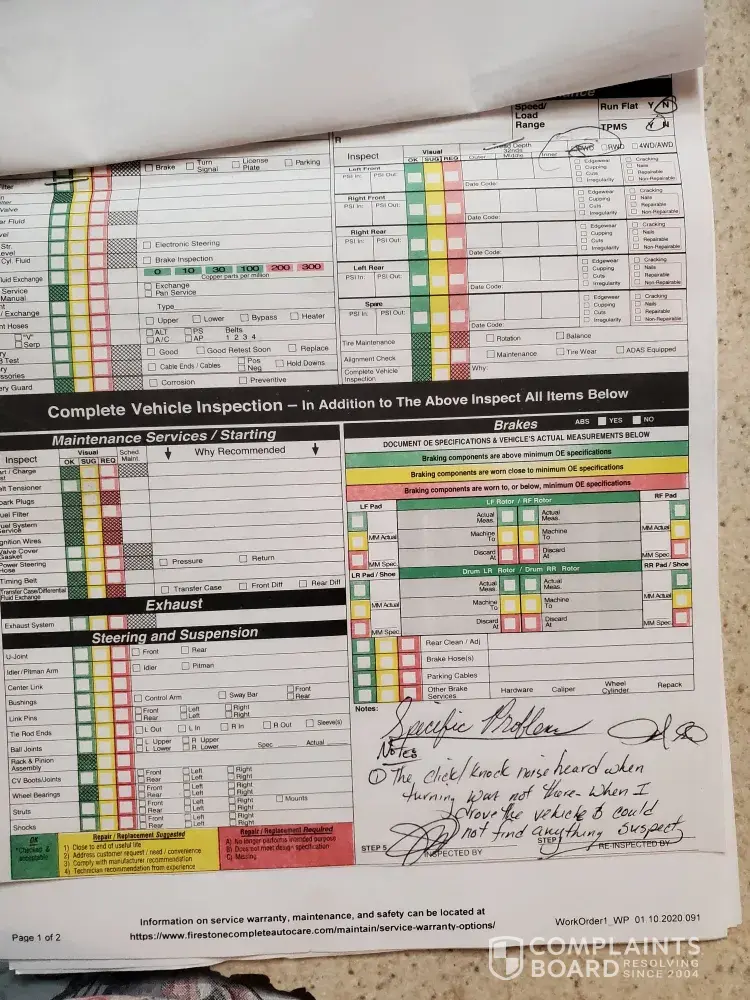 Speed/
Load
Range
Run Flat Y N
TPMS Y N
Brake
Turn Signal
License Plate
Parking
R
Inspect
Visual
OK SUG REQ
Tread Depth
32nds
Outer Middle Inner
FWD RWD 4WD/AWD
Left Front
PSI In: PSI Out:
Date Code:
Edgewear
Cupping
Cuts
Irregularity
Cracking
Nails
Repairable
Non-Repairable
Right Front
PSI In: PSI Out:
Date Code:
Edgewear
Cupping
Cuts
Irregularity
Cracking
Nails
Repairable
Non-Repairable
Right Rear
PSI In: PSI Out:
Date Code:
Edgewear
Cupping
Cuts
Irregularity
Cracking
Nails
Repairable
Non-Repairable
Left Rear
PSI In: PSI Out:
Date Code:
Edgewear
Cupping
Cuts
Irregularity
Cracking
Nails
Repairable
Non-Repairable
Spare
PSI In: PSI Out:
Date Code:
Edgewear
Cupping
Cuts
Irregularity
Cracking
Nails
Repairable
Non-Repairable
Tire Maintenance
Rotation
Balance
Alignment Check
Maintenance
Tire Wear
ADAS Equipped
Complete Vehicle
Inspection
Why:
Electronic Steering
Brake Inspection
0 10 30 100 200 300
Copper parts per million
Exchange
Pan Service
Type
Upper Lower Bypass Heater
ALT PS Belts
A/C AP 1 2 3 4
Good Good Retest Soon Replace
Cable Ends / Cables Pos Neg Hold Downs
Corrosion Preventive
Complete Vehicle Inspection – In Addition to The Above Inspect All Items Below
Maintenance Services / Starting
Inspect
Visual
OK SUG REQ
Sched.
Maint.
Why Recommended
Pressure
Return
Timing Belt
Transfer Case/Differential
Fluid Exchange
Transfer Case Front Diff Rear Diff
Exhaust
Exhaust System
Steering and Suspension
U-Joint
Front Rear
Idler/Pitman Arm
Idler Pitman
Center Link
Bushings
Control Arm Sway Bar Front Rear
Link Pins
Front Rear Left Left Right Right
Tie Rod Ends
L Out L In R In R Out Sleeve(s)
Ball Joints
L Upper L Lower R Upper R Lower Spec Actual
Rack & Pinion
Assembly
CV Boots/Joints
Front Rear Left Left Right Right
Wheel Bearings
Front Rear Left Left Right Right
Struts
Front Rear Left Left Right Right Mounts
Shocks
Front Rear Left Left Right Right
OK
*Checked &
acceptable
Repair / Replacement Suggested
1) Close to end of useful life
2) Address customer request / need / convenience
3) Comply with manufacturer recommendation
4) Technician recommendation from experience
Repair / Replacement Required
A) No longer performs intended purpose
B) Does not meet design specification
C) Missing
Brakes
ABS YES NO
DOCUMENT OE SPECIFICATIONS & VEHICLE'S ACTUAL MEASUREMENTS BELOW
Braking components are above minimum OE specifications
Braking components are worn close to minimum OE specifications
Braking components are worn to, or below, minimum OE specifications
LF Pad
LF Rotor / RF Rotor
RF Pad
Actual
Meas.
Actual
Meas.
MM Actual
Machine
To
Machine
To
MM Actual
MM Spec
Discard
At
Discard
At
MM Spec
LR Pad / Shoe
Drum LR Rotor / Drum RR Rotor
RR Pad / Shoe
Actual
Meas.
Actual
Meas.
MM Actual
Machine
To
Machine
To
MM Actual
MM Spec
Discard
At
Discard
At
MM Spec
Rear Clean / Adj
Brake Hose(s)
Parking Cables
Other Brake
Services
Hardware Caliper Wheel Cylinder Repack
Notes:
Specific Problem
Notes
① The click/knock noise heard when
turning was not there when I
drove the vehicle & could
not find anything suspect
STEP 5
INSPECTED BY
STEP
RE-INSPECTED BY
Information on service warranty, maintenance, and safety can be located at
https://www.firestonecompleteautocare.com/maintain/service-warranty-options/
Page 1 of 2
WorkOrder1_WP 01.10.2020.091
COMPLAINTS
BOARD RESOLVING
SINCE 2004